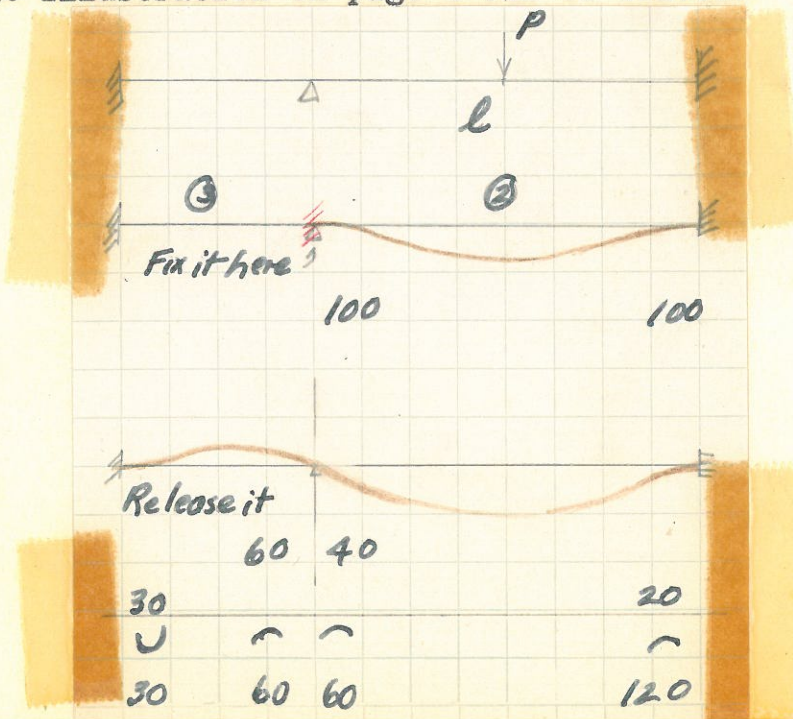 P
l
③ ②
Fix it here
100 100
Release it
60 40
30 20
30 60 60 120